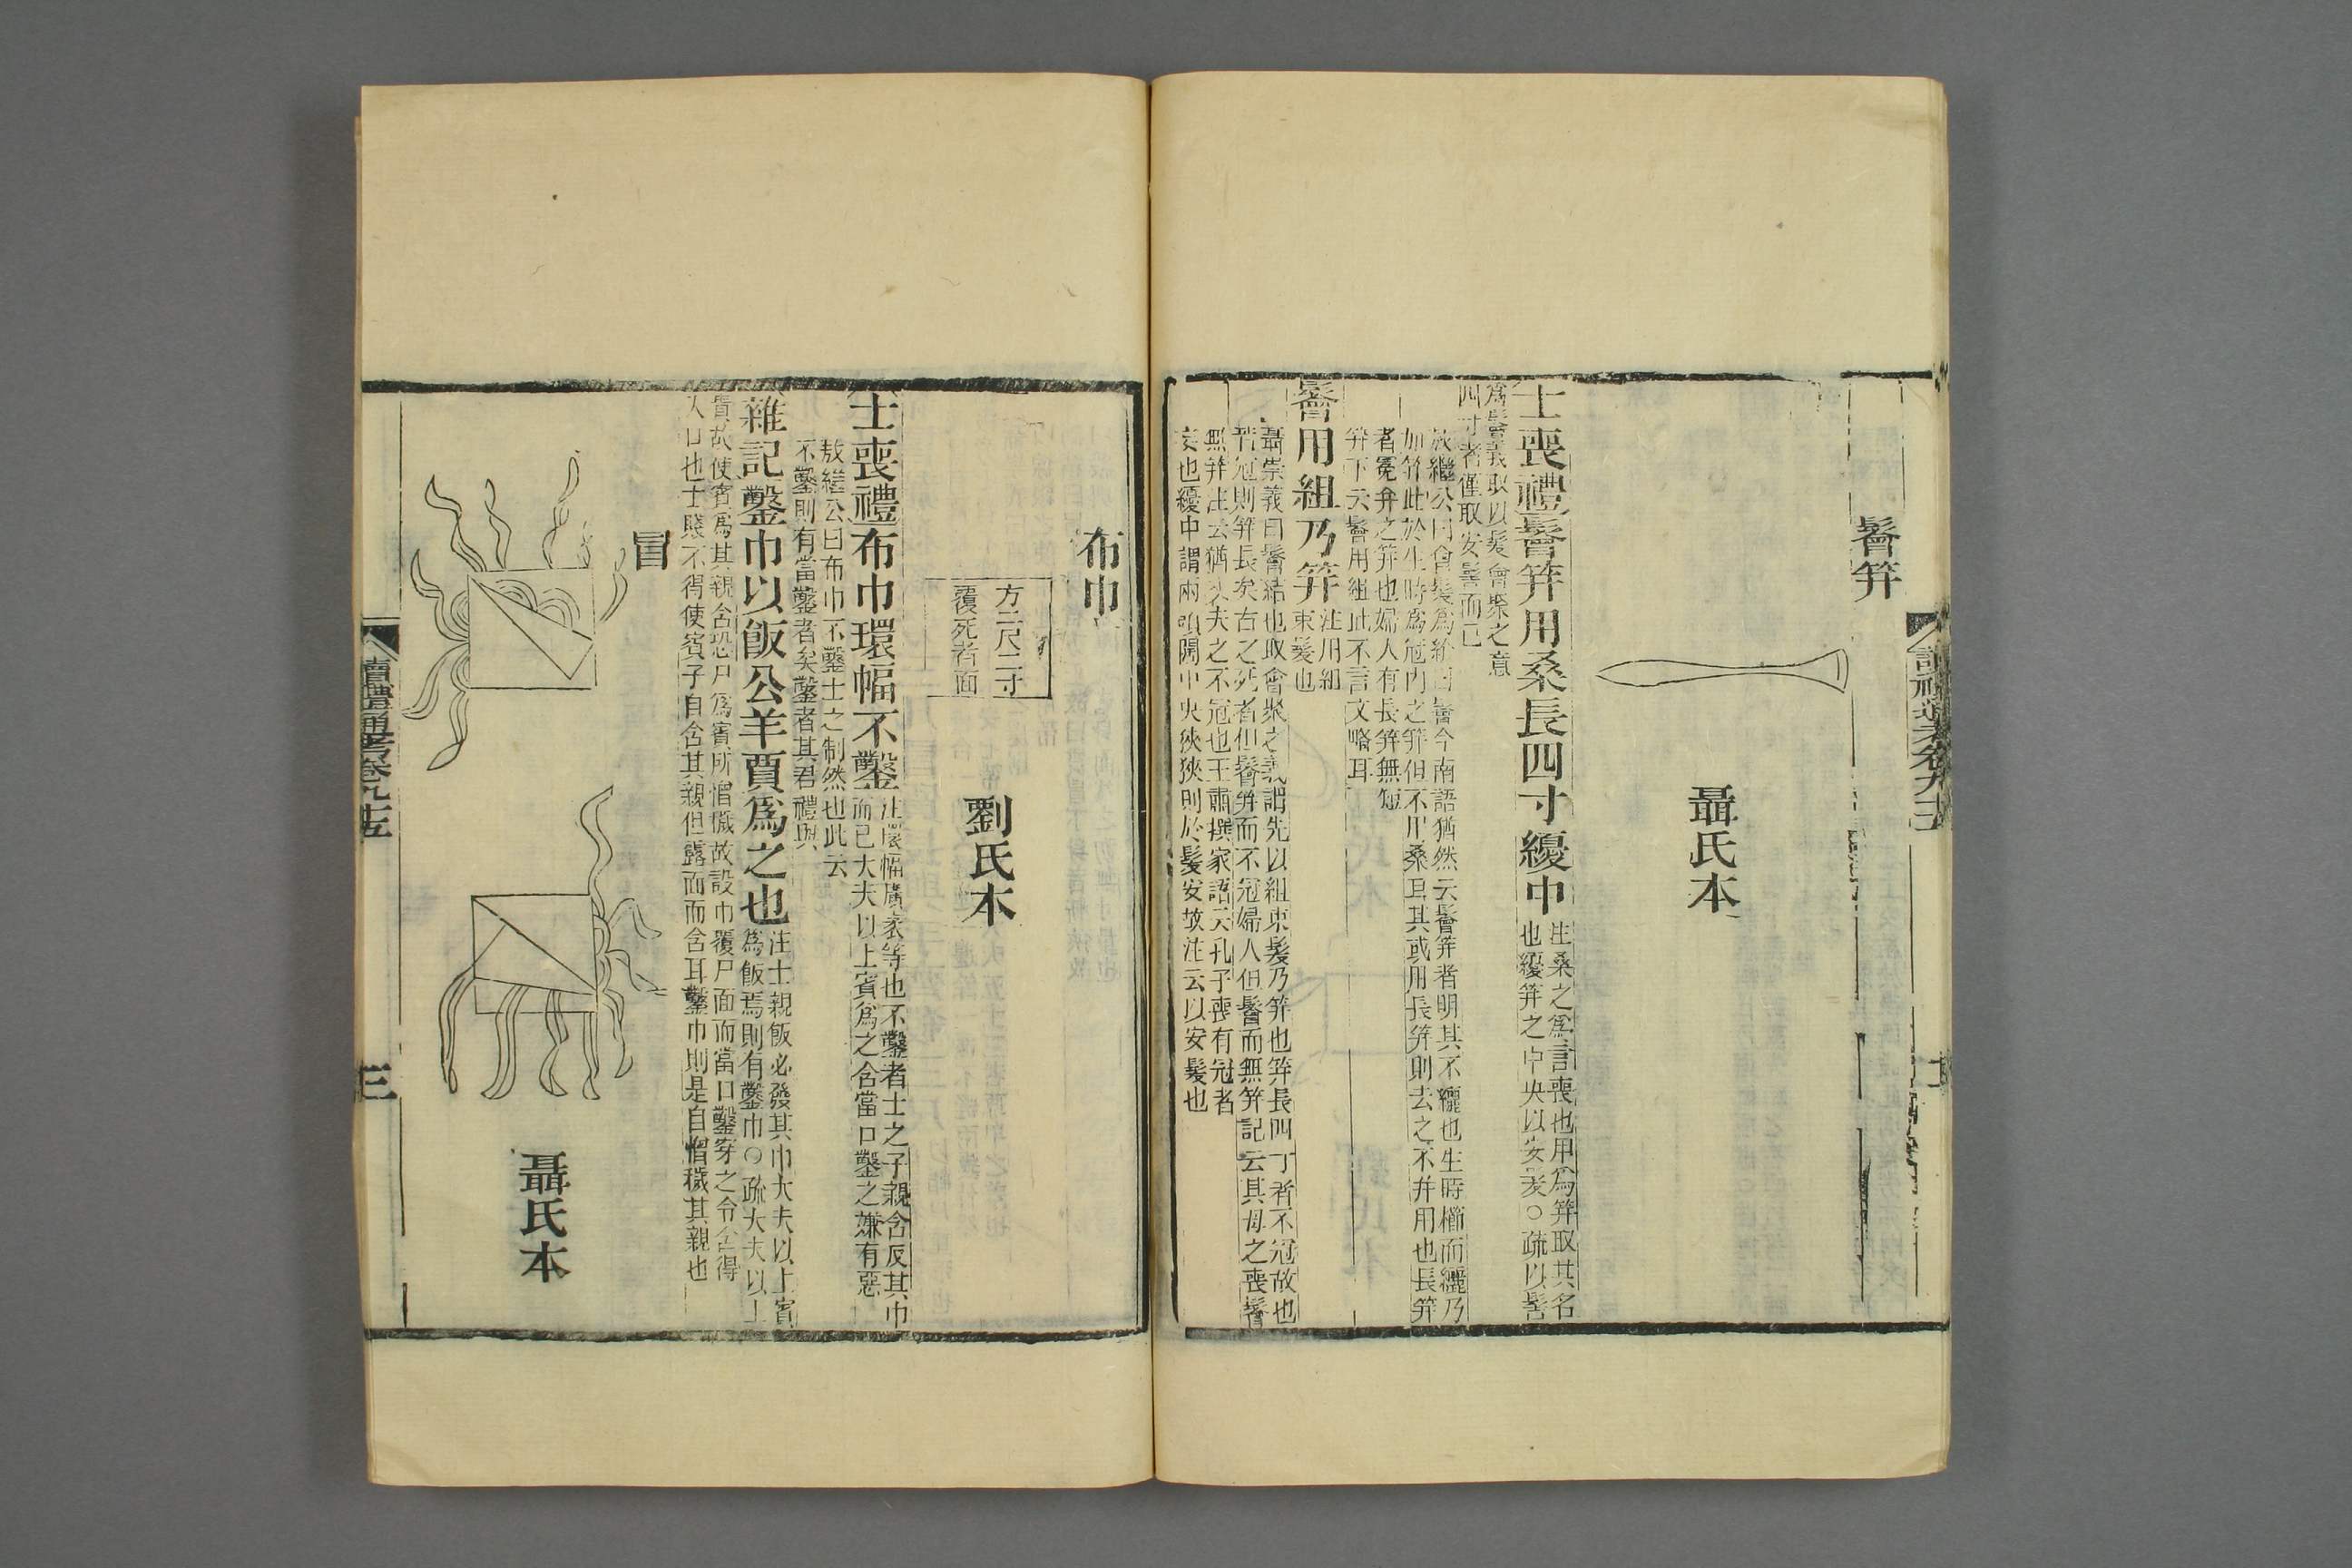 鬠笄
聶氏本
士喪禮鬠笄用桑長四寸纋中
注桑之為言喪也用為笄取其名
也纋笄之中央以安髮○疏以髻
為鬠義取以髮會聚之意
四寸者僅取安髻而已
敖繼公曰會髮為紒曰鬠今南語猶然云鬠笄者明其不纚也生時櫛而纚乃
加笄此於生時為冠內之笄但不用桑耳其或用長笄則去之不并用也長笄
者冕弁之笄也婦人有長笄無短
笄下云鬠用組此不言文略耳
鬠用組乃笄
注用組
束髮也
聶崇義曰鬠結也取會聚之義謂先以組束髮乃笄也笄長四寸者不冠故也
若冠則笄長矣古之死者但鬠笄而不冠婦人但鬠而無笄記云其母之喪鬠
無笄注云猶丈夫之不冠也王肅撰家語云孔子喪有冠者
妄也纋中謂兩頭闊中央狹狹則於髮安故注云以安髮也
布巾
方二尺二寸
覆死者面
劉氏本
士喪禮布巾環幅不鑿
注環幅廣袤等也不鑿者士之子親含反其巾
而已大夫以上賓為之含當口鑿之嫌有惡
敖繼公曰布巾不鑿士之制然也此云
不鑿則有當鑿者矣鑿者其君禮與
雜記鑿巾以飯公羊賈為之也
注士親飯必發其巾大夫以上賓
為飯焉則有鑿巾○疏大夫以上
賓故使賓為其親含恐尸為賓所憎穢故設巾覆尸面而當口鑿穿之令含得
入口也士賤不得使賓子自含其親但露面而含耳鑿巾則是自憎穢其親也
冒
聶氏本
讀禮通考卷九十五
三